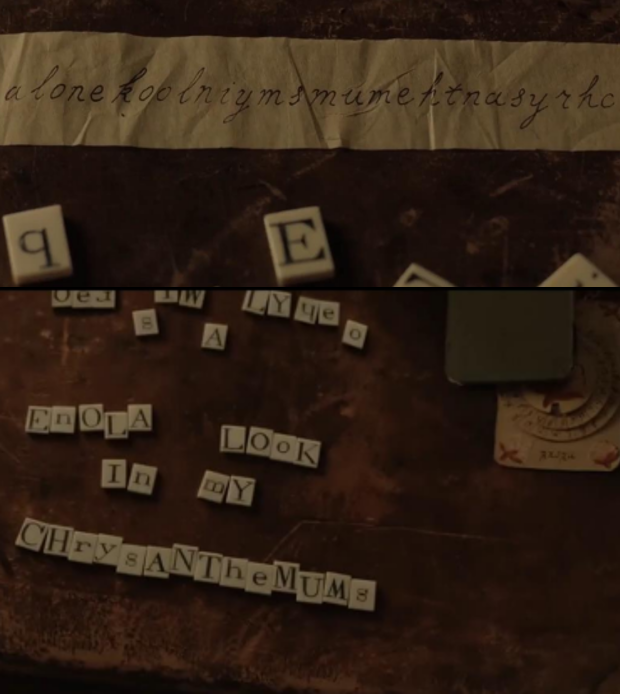 alonekoolniymsmumehtnasyrhc
q E
LYqe
s A o
EnOLA LOoK
In mY
CHrysANTheMUMs